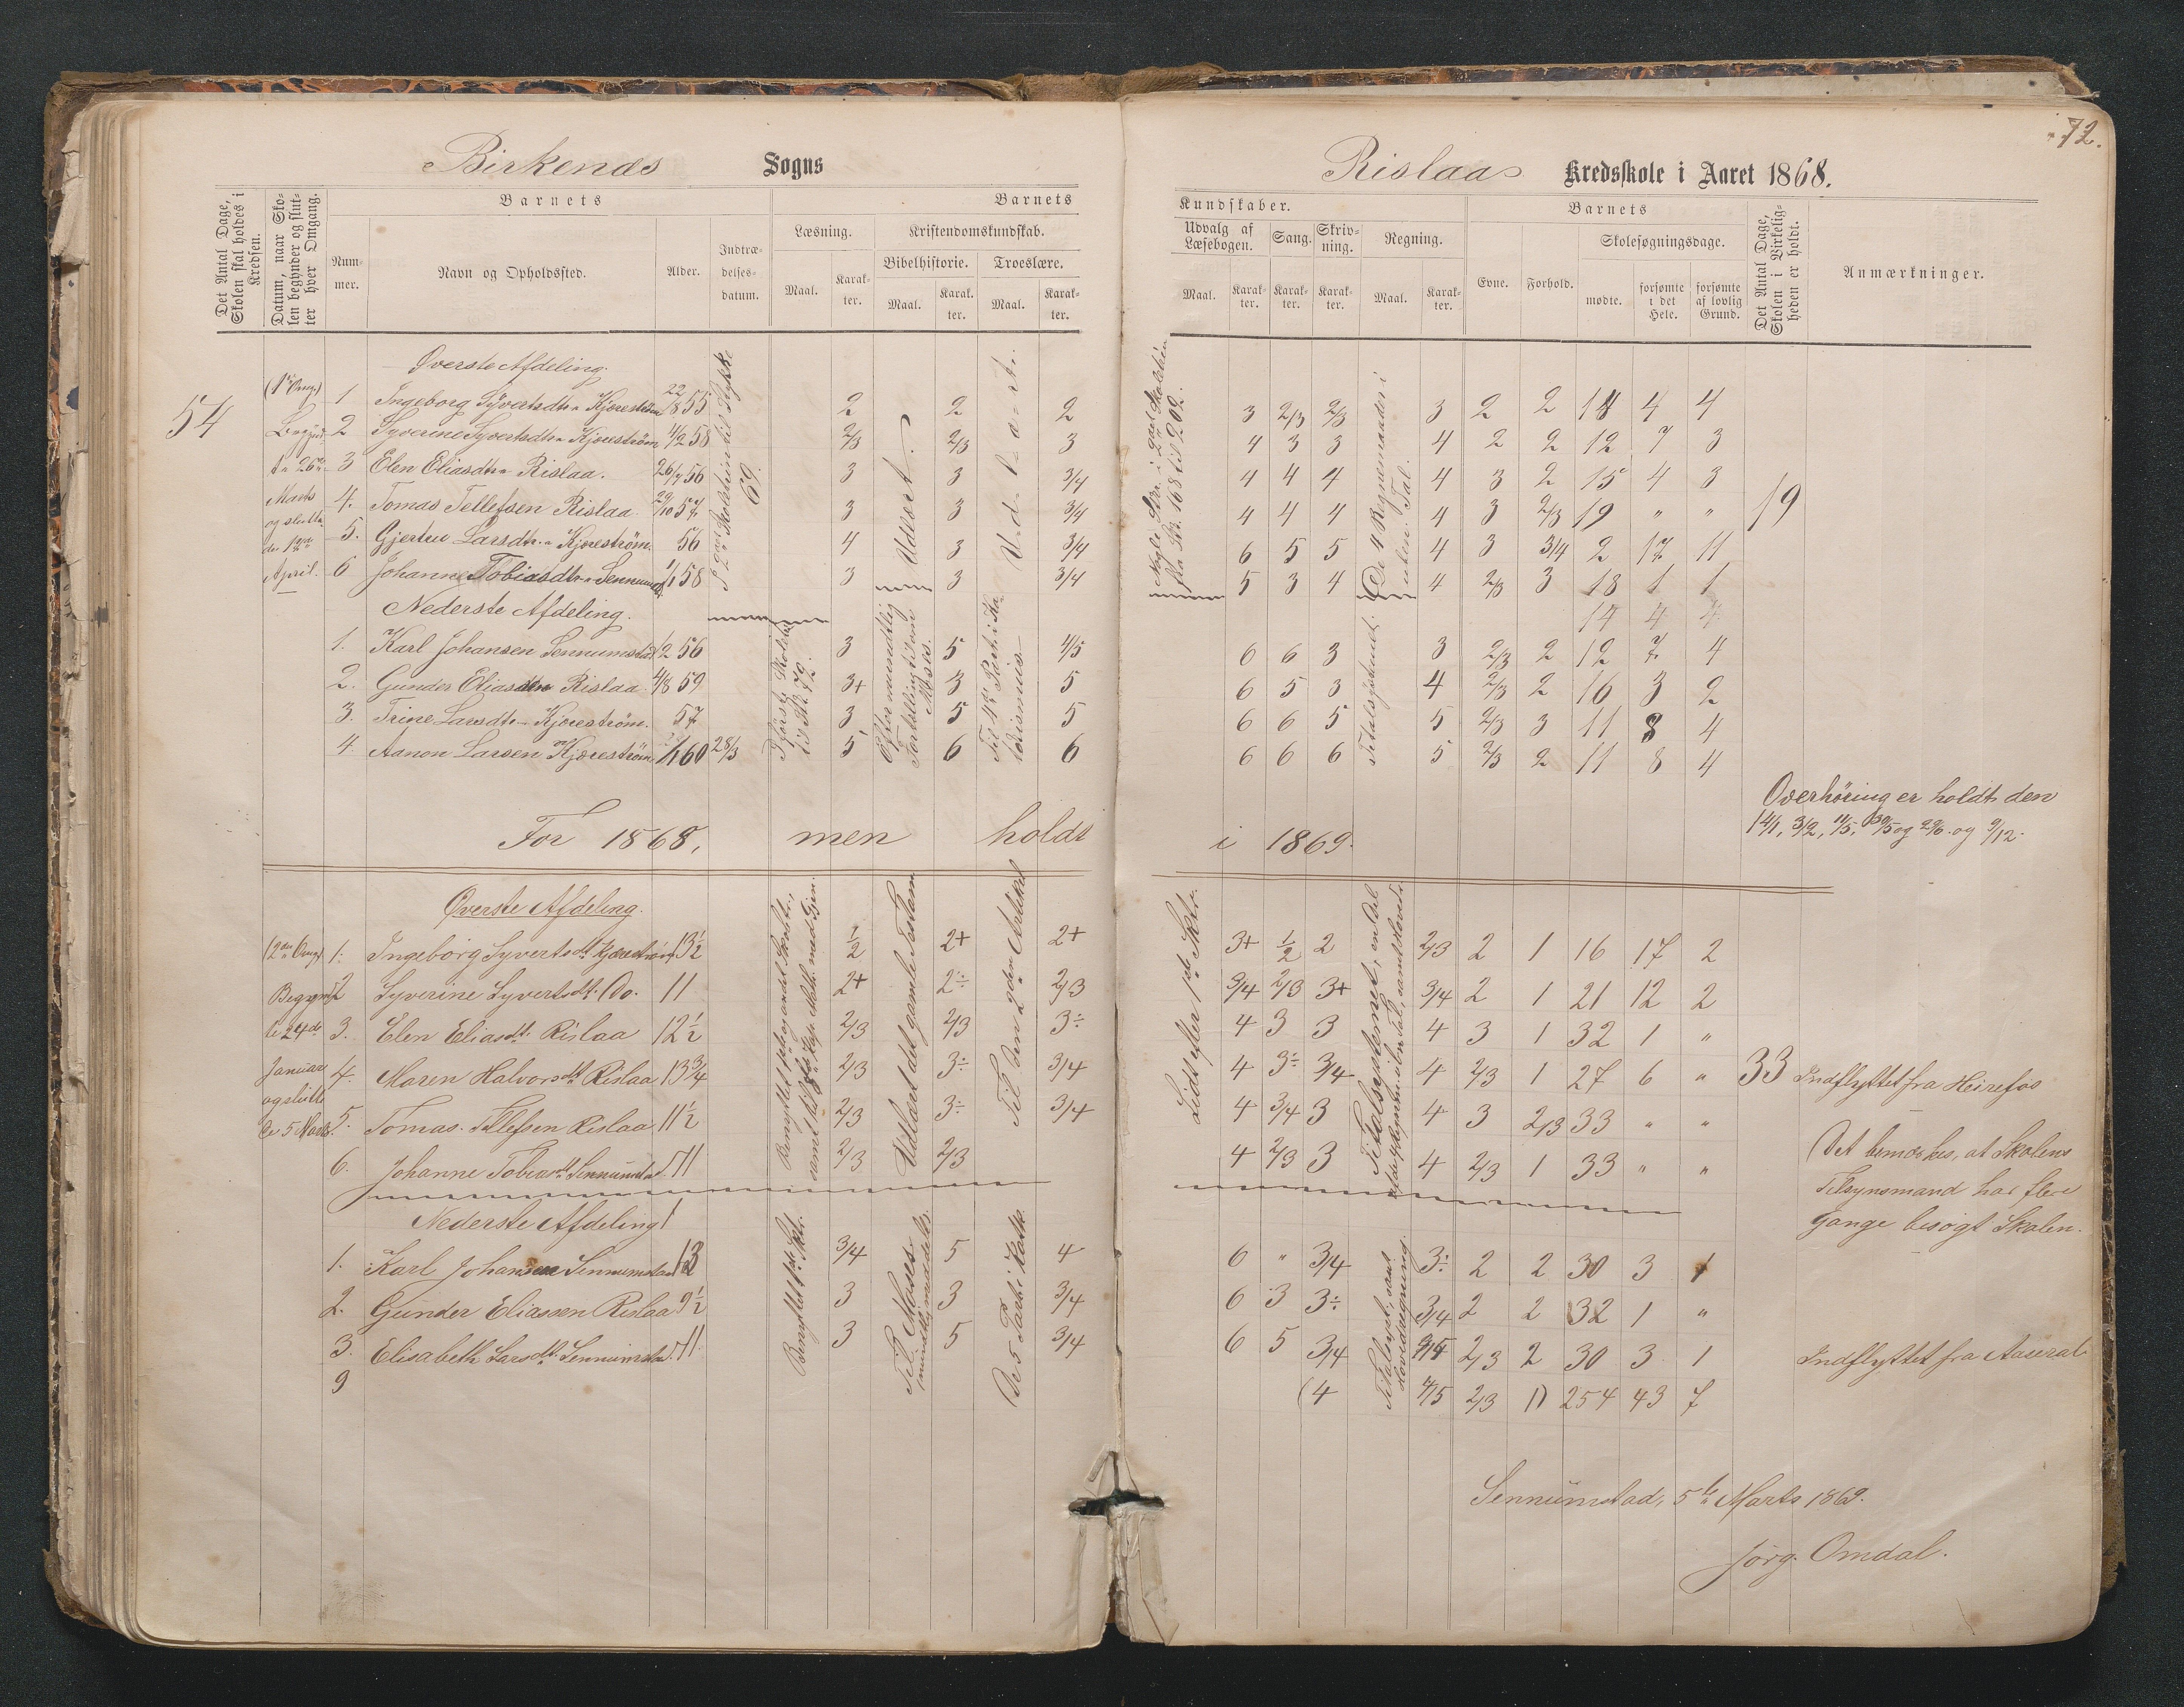 72.
Birkenæs Sogns
Rislaa Kredsskole i Aaret 1868.
Det Antal Dage, Skolen skal holdes i Kredsen.
Datum, naar Skolen begynder og slutter hver Omgang.
Barnets
Nummer.
Navn og Opholdssted.
Alder.
Indtrædelsesdatum.
Barnets
Læsning.
Maal.
Karakter.
Kristendomskundskab.
Bibelhistorie.
Maal.
Karakter.
Troeslære.
Maal.
Karakter.
Kundskaber.
Udvalg af Læsebogen.
Maal.
Karakter.
Sang.
Karakter.
Skrivning.
Karakter.
Regning.
Maal.
Karakter.
Barnets
Evne.
Forhold.
Skolesøgningsdage.
mødte.
forsømte i det Hele.
forsømte af lovlig Grund.
Det Antal Dage, Skolen i Virkeligheden er holdt.
Anmærkninger.
54
Øverste Afdeling.
1 Ingeborg Syvertsdtr Kjærestrøm 22/8 55 2 2 2 3 2/3 2/3 3 2 2 18 4 4
2 Syverine Syvertsdtr Kjærestrøm 4/2 58 2/3 2/3 3 4 3 3 4 2 2 12 7 3
3 Elen Eliasdtr Rislaa. 26/7 56 3 3 3/4 4 4 4 4 3 2 15 4 3
4. Tomas Tellefsen Rislaa. 29/10 57 3 3 3/4 4 4 4 4 3 2/3 19 " " 19
5. Gjertru Larsdtr Kjærestrøm. 56 4 3 3/4 6 5 5 4 3 3/4 2 17 11
6 Johanne Tobiasdtr Sennumstad 1/1 58 3 3 3/4 5 3 4 4 2/3 3 18 1 1
Udlært.
De 4 Regnemaader i uleln. Tal.
Nederste Afdeling.
14 4 4
1. Karl Johansen Sennumstad 1/2 56 3 5 4/5 6 6 3 3 2/3 2 12 7 4
2. Gunder Eliassen Rislaa 4/8 59 3+ 3 5 6 5 3 4 2/3 2 16 3 2
3. Trine Larsdtr Kjærestrøm. 57 3 5 5 6 6 5 5 2/3 3 11 8 4
4 Aanon Larsen Kjærestrøm 60 28/3 5 6 6 6 6 6 5 2/3 2 11 8 4
Efter mundtlig Fortælling til om Moses.
Overhøring er holdt den
14/1, 3/2, 11/5, 30/5 og 29/6 og 9/12.
For 1868, men holdt i 1869.
Øverste Afdeling.
1. Ingeborg Syvertsdt Kjærestrøm 13½ ½ 2+ 2+ 3+ ½ 2 2/3 2 1 16 17 2
2 Syverine Syvertsdt. Do. 11 2+ 2÷ 2/3 3/4 2/3 3+ 3/4 2 1 21 12 2
3. Elen Eliasdt. Rislaa 12½ 2/3 2/3 3÷ 4 3 3 4 3 1 32 1 "
4. Maren Halvorsdt Rislaa 13¾ 2/3 3÷ 3/4 4 3÷ 3/4 4 2/3 1 27 6 " 33 Indflyttet fra Heirefos
5. Tomas Tellefsen Rislaa 11½ 2/3 3÷ 3/4 4 3/4 3 4 3 2/3 33 " "
6. Johanne Tobiasdt Sennumstad. 11 2/3 2/3 4 2/3 3 4 2/3 1 33 " "
Udlært det gamle Testam.
Til den 2den Artikel
Lidt efter 1ste Skr.
Det bemærkes, at Skolens
Tilsynsmand har flere
Gange besøgt Skolen.
Nederste Afdeling
1. Karl Johansen Sennumstad 13 3/4 5 4 6 " 3/4 3÷ 2 2 30 3 1
2. Gunder Eliassen Rislaa 9½ 3 3 3/4 6 3 3÷ 3/4 2 2 32 1 "
3. Elisabeth Larsdt. Sennumstad. 11 3 5 3/4 6 5 3/4 2/3 2 30 3 1 Indflyttet fra Aaseral
9 (4 4/5 2/3 1) 254 43 7
Til Moses mundtlig meddelt.
Sennumstad, 5te Marts 1869.
Jørg. Omdal.